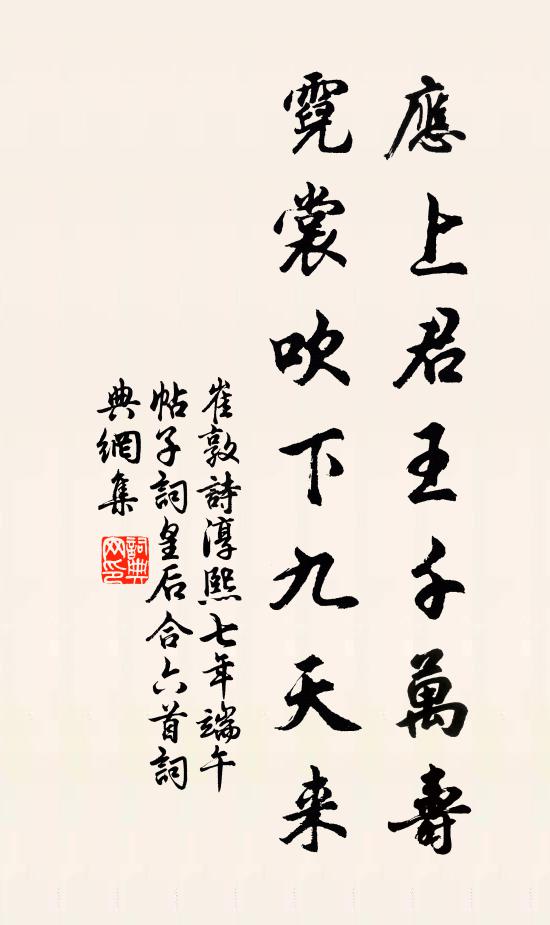 應上君王千萬壽
霓裳吹下九天来
崔敦詩淳熙七年端午
帖子詞皇后合六首詞
典網集
詞典网印